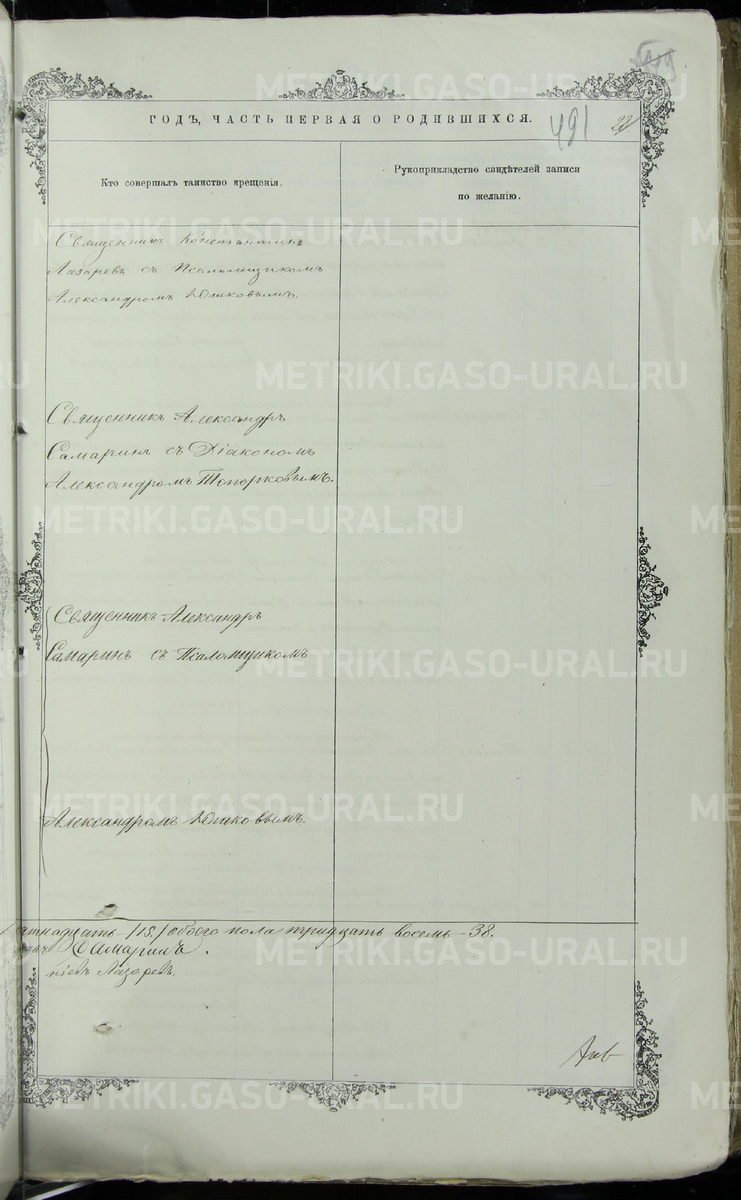 ГОДЪ, ЧАСТЬ ПЕРВАЯ О РОДИВШИХСЯ.
491
28
Кто совершалъ таинство крещенія.
Рукоприкладство свидѣтелей записи
по желанію.
Священникъ Константинъ
Лазаревъ съ Псаломщикомъ
Александромъ
Священникъ Александръ
Самаринъ съ Діакономъ
Александромъ Топорковымъ.
Священникъ Александръ
Самаринъ съ Псаломщикомъ
Александромъ
атнадцать /15/ обоего пола тридцать восемь – 38.
Самаринъ.
Лазаревъ.
METRIKI.GASO-URAL.RU